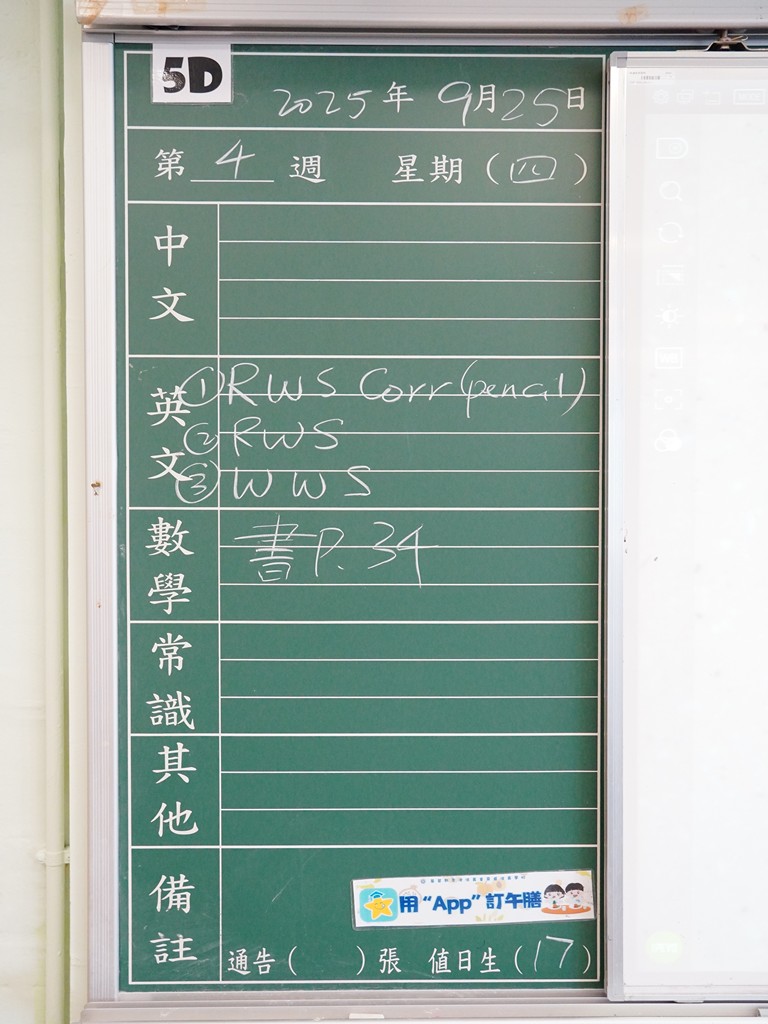 5D
2025年 9月25日
第 4 週 星期(四)
中文
英文
① RWS Corr (pencil)
② RWS
③ WWS
數學
書P.34
常識
其他
備註
用 “App” 訂午膳
通告( )張 值日生(17)